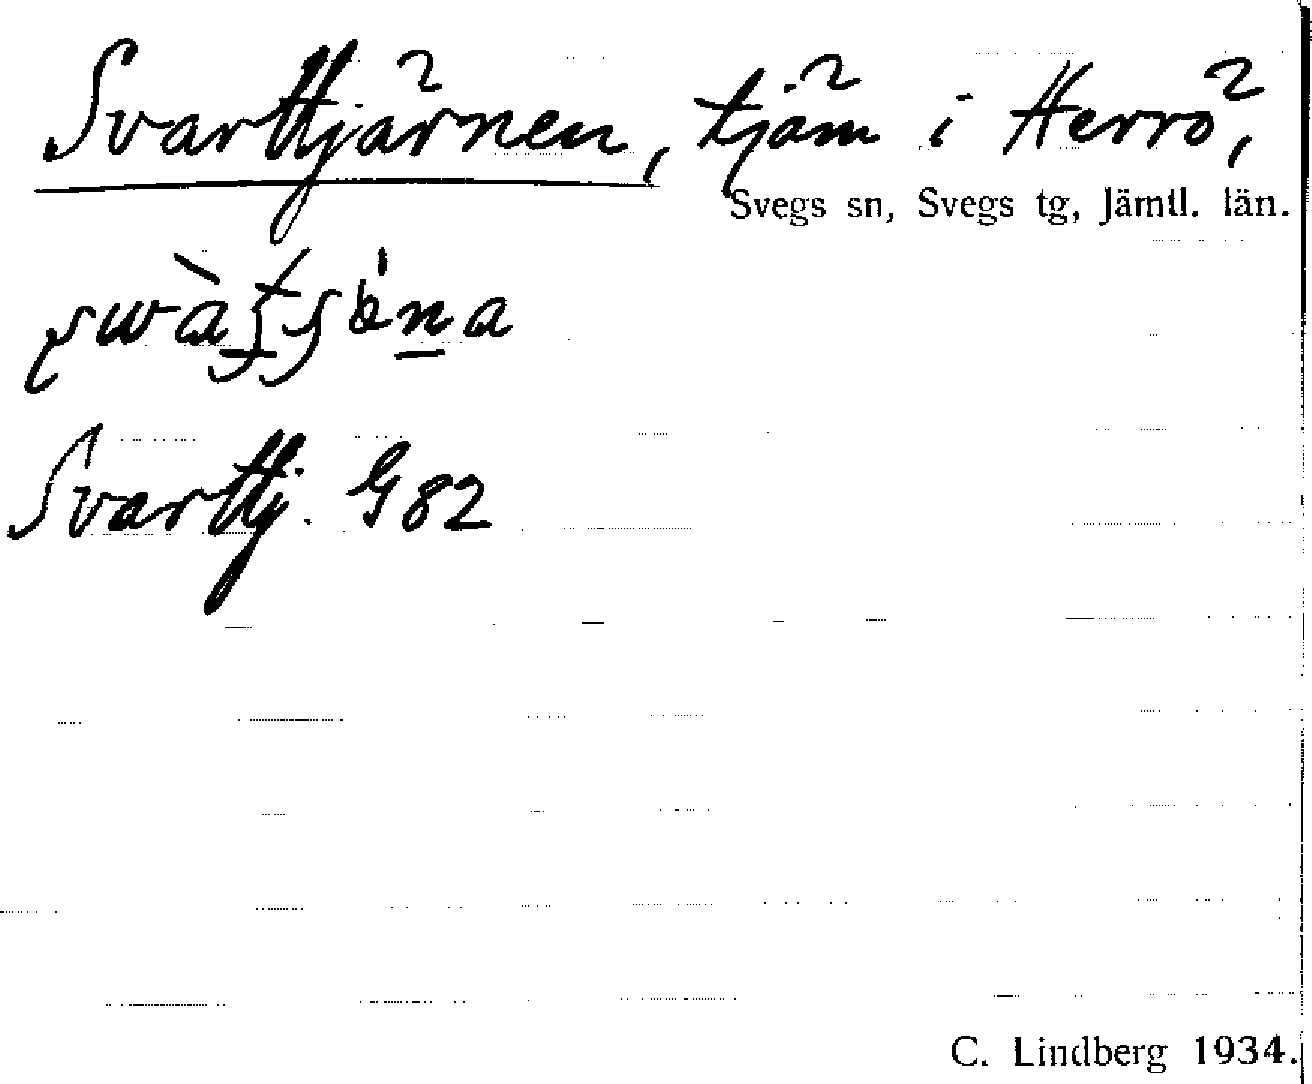 Svarttjärnen, tjärn i Herrö,
Svegs sn, Svegs tg, Jämtl. län.
Svarttj. G 82
C. Lindberg 1934.